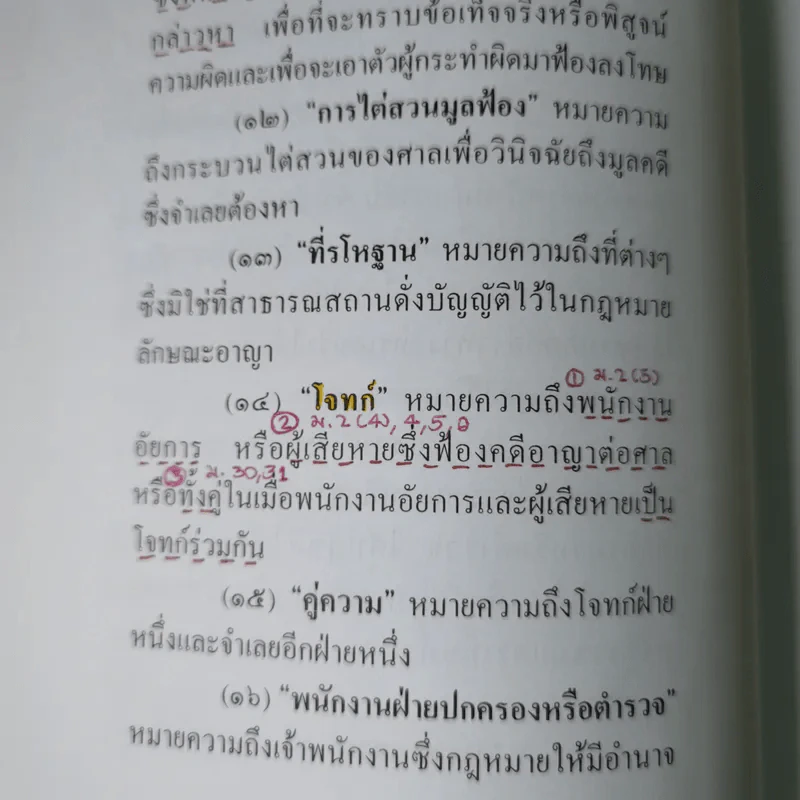 กล่าวหา เพื่อที่จะทราบข้อเท็จจริงหรือพิสูจน์
ความผิดและเพื่อจะเอาตัวผู้กระทำผิดมาฟ้องลงโทษ
(๑๒) “การไต่สวนมูลฟ้อง” หมายความ
ถึงกระบวนไต่สวนของศาลเพื่อวินิจฉัยถึงมูลคดี
ซึ่งจำเลยต้องหา
(๑๓) “ที่รโหฐาน” หมายความถึงที่ต่างๆ
ซึ่งมิใช่ที่สาธารณสถานดั่งบัญญัติไว้ในกฎหมาย
ลักษณะอาญา
① ม.2(5)
(๑๔) “โจทก์” หมายความถึงพนักงาน
② ม.2(4), 4, 5, 6
อัยการ หรือผู้เสียหายซึ่งฟ้องคดีอาญาต่อศาล
③ ม. 30,31
หรือทั้งคู่ในเมื่อพนักงานอัยการและผู้เสียหายเป็น
โจทก์ร่วมกัน
(๑๕) “คู่ความ” หมายความถึงโจทก์ฝ่าย
หนึ่งและจำเลยอีกฝ่ายหนึ่ง
(๑๖) “พนักงานฝ่ายปกครองหรือตำรวจ”
หมายความถึงเจ้าพนักงานซึ่งกฎหมายให้มีอำนาจ